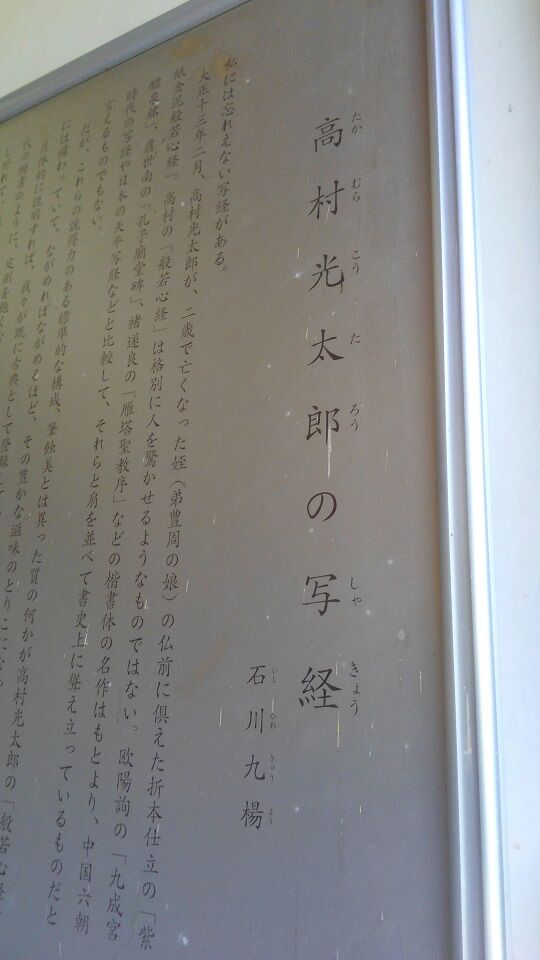 高村光太郎の写経
たか むら こう た ろう しゃ きょう
石川九楊
いし かわ きゅう よう
私には忘れえない写経がある。
大正十三年二月、高村光太郎が、二歳で亡くなった姪（弟豊周の娘）の仏前に倶えた折本仕立の「紫
紙金泥般若心経」。高村の「般若心経」は格別に人を驚かせるようなものではない。欧陽詢の「九成宮
醴泉銘」、虞世南の「孔子廟堂碑」、褚遂良の「雁塔聖教序」などの楷書体の名作はもとより、中国六朝
時代の写経や日本の天平写経などと比較して、それらと肩を並べて書史上に聳え立っているものだと
言えるものでもない。
だが、これらの説得力のある標準的な構成、筆蝕美とは異った質の何かが高村光太郎の「般若心経」
には備わっていて、ながめればながめるほど、その豊かな滋味のとりこになっ
具体的に説明すれば、我々が既に古典として登録して
代の楷書のように、定則を